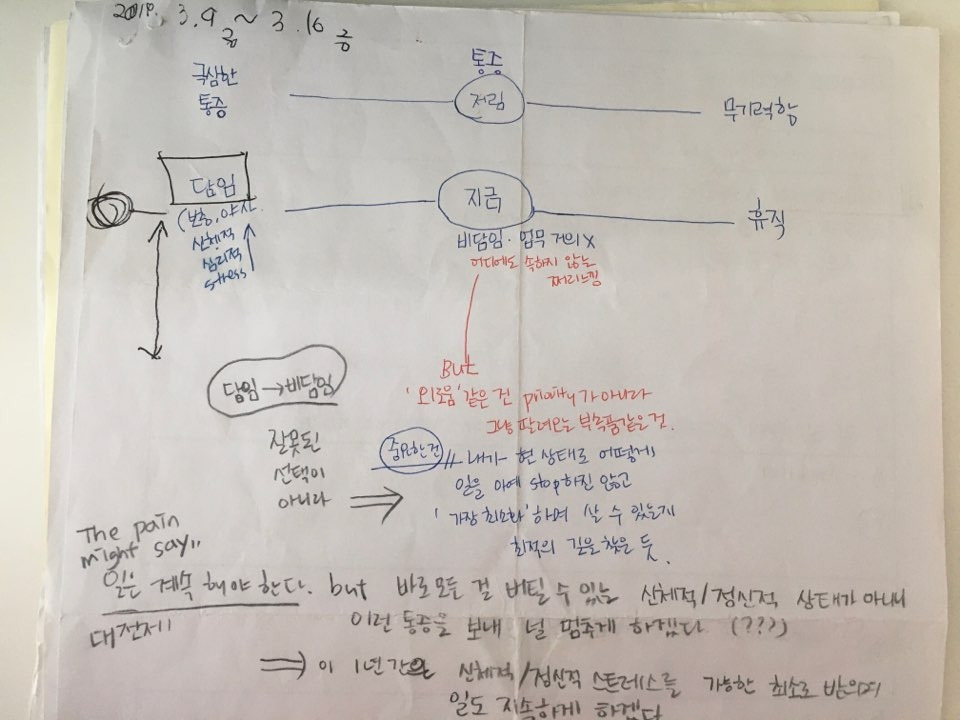 3.9 ~ 3.16
금 금
극심한
통증
통증
저림
무기력함
담임
(보충, 야자
신체적
심리적
stress
지금
비담임. 업무 거의 X
어디에도 속하지 않는
찌리느낌
휴직
But
'외로움' 같은 건 priority가 아니라
그냥 딸려오는 부속품같은 것.
담임 → 비담임
잘못된
선택이
아니라
중요한 건 내가 현 상태로 어떻게
일을 아예 stop하진 않고
'가장 최소화' 하며 살 수 있는지
최적의 길을 찾은 듯.
The pain
might say,,
일은 계속 해야 한다. but 바로 모든 걸 버틸 수 있는 신체적/정신적 상태가 아니니
대전제 이런 통증을 보내 널 멈추게 하겠다 (???)
⇒ 이 1년간은 신체적/정신적 스트레스를 가능한 최소로 받으며
일도 지속하게 하겠다